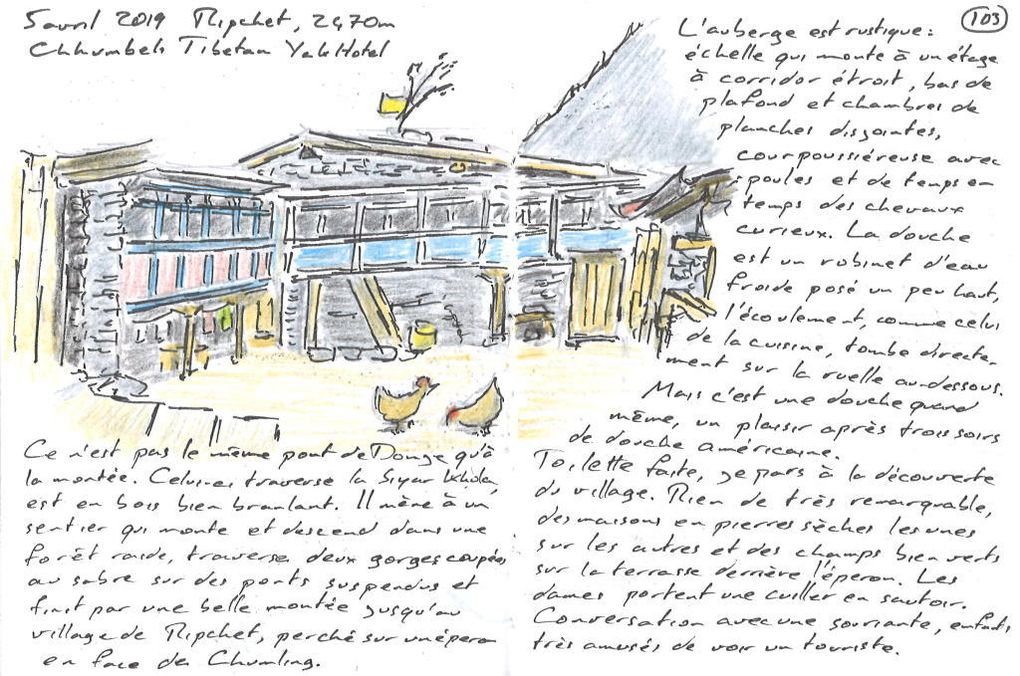 5 avril 2019 Ripchet, 2470m
Chhumbeh Tibetan Yak Hotel
103
Ce n'est pas le même pont de Donge qu'à
la montée. Celui-ci traverse la Siyar Khola,
est en bois bien branlant. Il mène à un
sentier qui monte et descend dans une
forêt raide, traverse deux gorges coupées
au sabre sur des ponts suspendus et
finit par une belle montée jusqu'au
village de Ripchet, perché sur un éperon
en face de Chumling.
L'auberge est rustique :
échelle qui monte à un étage
à corridor étroit, bas de
plafond et chambres de
planches disjointes,
cour poussiéreuse avec
poules et de temps en
temps des chevaux
curieux. La douche
est un robinet d'eau
froide posé un peu haut,
l'écoulement, comme celui
de la cuisine, tombe directe-
ment sur la ruelle au-dessous.
Mais c'est une douche quand
même, un plaisir après trois soirs
de douche américaine.
Toilette faite, je pars à la découverte
du village. Rien de très remarquable,
des maisons en pierres sèches les unes
sur les autres et des champs bien verts
sur la terrasse derrière l'éperon. Les
dames portent une cuiller en sautoir.
Conversation avec une souriante, enfants
très amusés de voir un touriste.